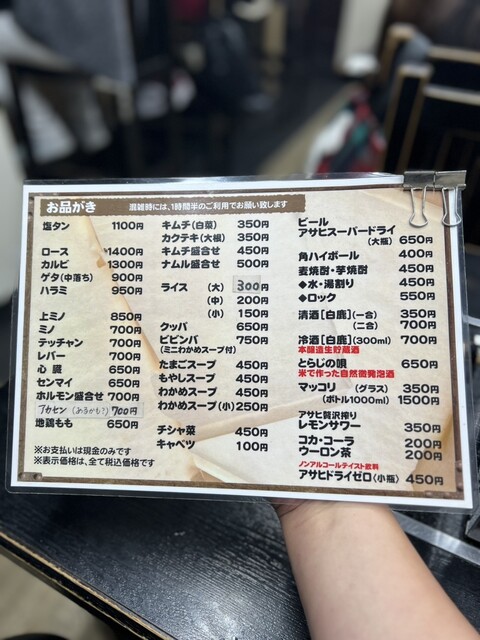 お品がき
混雑時には、1時間半のご利用でお願い致します
塩タン 1100円
ロース 1400円
カルビ 1300円
ゲタ(中落ち) 900円
ハラミ 950円
上ミノ 850円
ミノ 700円
テッチャン 700円
レバー 700円
心臓 650円
センマイ 650円
ホルモン盛合せ 700円
アカセン(あるかも?) 700円
地鶏もも 650円
※お支払いは現金のみです
※表示価格は、全て税込価格です
キムチ(白菜) 350円
カクテキ(大根) 350円
キムチ盛合せ 450円
ナムル盛合せ 500円
ライス (大) 300円
(中) 200円
(小) 150円
クッパ 650円
ビビンバ 750円
(ミニわかめスープ付)
たまごスープ 450円
もやしスープ 450円
わかめスープ 450円
わかめスープ(小) 250円
チシャ菜 450円
キャベツ 100円
ビール
アサヒスーパードライ
(大瓶) 650円
角ハイボール 400円
麦焼酎・芋焼酎 450円
◆水・湯割り 450円
◆ロック 550円
清酒[白鹿](一合) 350円
(二合) 700円
冷酒[白鹿](300ml) 700円
本醸造生貯蔵酒
とらじの唄 650円
米で作った自然微発泡酒
マッコリ (グラス) 350円
(ボトル1000ml) 1500円
アサヒ贅沢搾り
レモンサワー 350円
コカ・コーラ 200円
ウーロン茶 200円
ノンアルコールテイスト飲料
アサヒドライゼロ〈小瓶〉 450円